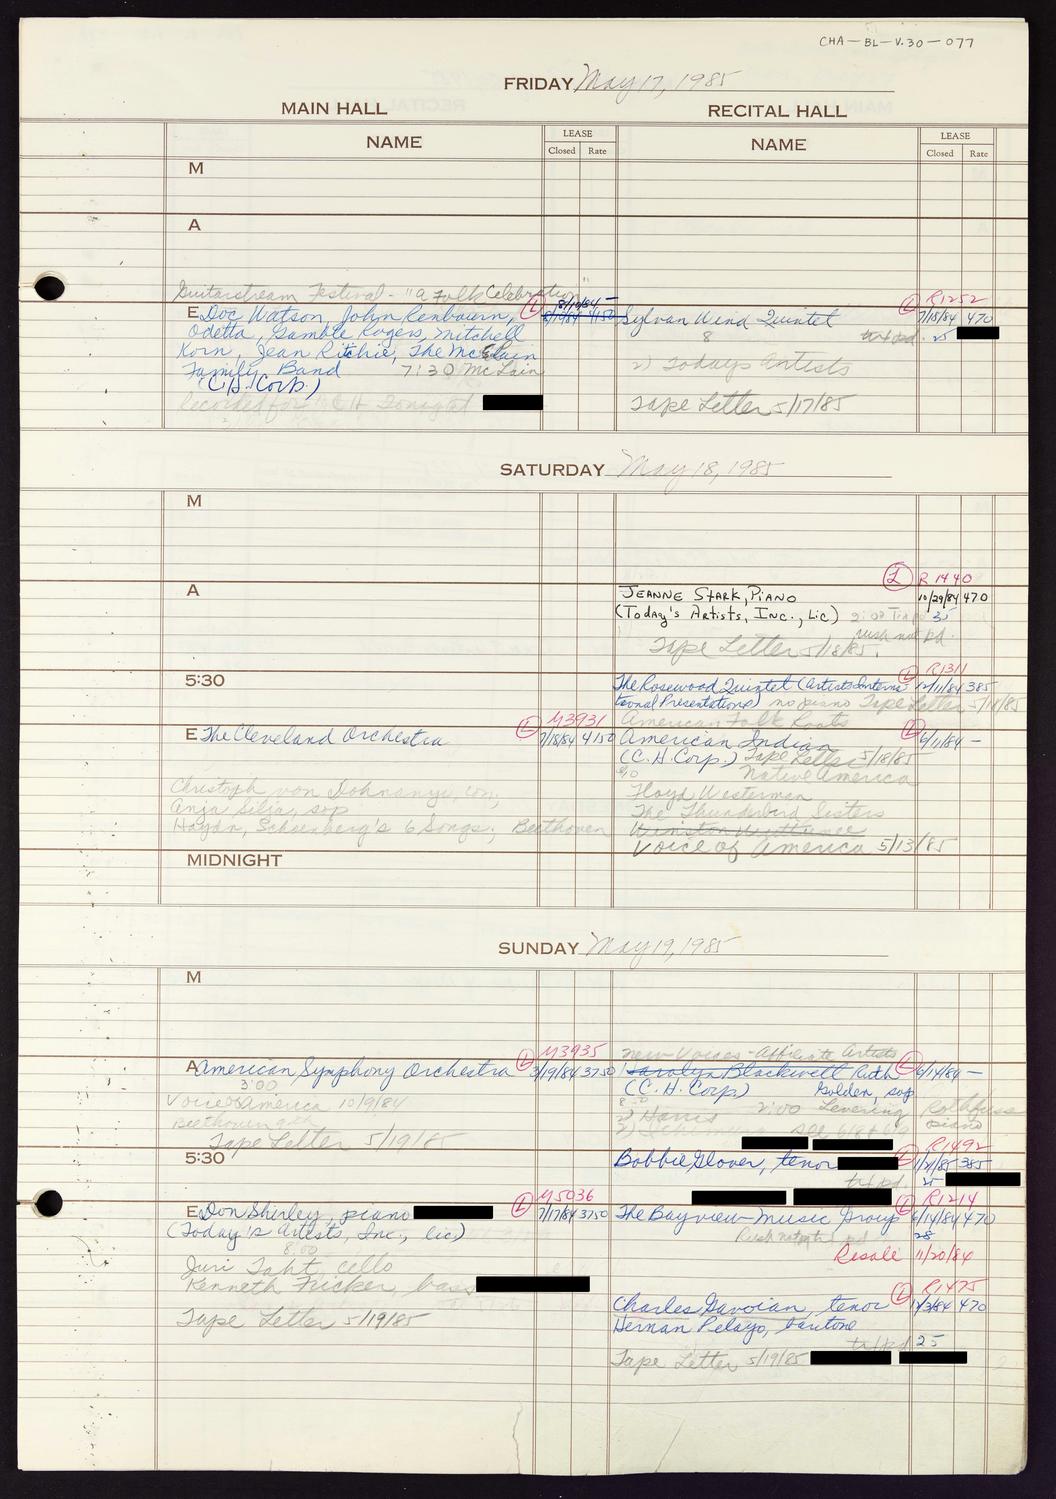 CHA-BL-V.30-077
FRIDAY May 17, 1985
MAIN HALL
RECITAL HALL
NAME
LEASE
Closed Rate
NAME
LEASE
Closed Rate
M
A
Guitarstream Festival - "A Folk Celebration"
E Doc Watson, John Renbourn,
Odetta, Gamble Rogers, Mitchell
Korn, Jean Ritchie, The McClain
Family Band 7:30 McLain
(C.H. Corp.)
Recorded for
L 8/10/84 -
4150
L R1252
Sylvan Wind Quintet 7/18/84 470
8 25
2) Todays Artists
Tape Letter 5/17/85
SATURDAY May 18, 1985
M
A
L R1440
JEANNE STARK, PIANO 10/29/84 470
(TODAY'S ARTISTS, INC., LIC) 35
rush not pd.
Tape Letter 5/18/85.
5:30
L R1311
The Rosewood Quintet (Artists Interna- 12/11/84 385
tional Presentations) no piano Tape Letter
American Folk Roots
E The Cleveland Orchestra
L M3931
7/18/84 4150
Christoph von Dohnanyi, con,
Anja Silja, sop
Haydn, Schoenberg's 6 Songs; Beethoven
American Indian L 6/11/84 -
(C.H. Corp.) Tape Letter 5/18/85
Native America
Floyd Westerman
The Thunderbird Sisters
Voice of America 5/13/85
MIDNIGHT
SUNDAY May 19, 1985
M
L M3935
A American Symphony Orchestra 3/19/84 3750
3:00
Voice of America 10/9/84
Beethoven 9th
Tape Letter 5/19/85
New Voices - Affiliate Artists
Carolyn Blackwell Ruth L 6/14/84 -
(C.H. Corp.) Golden, sop
2) Harris 2:00 Levering Rothfuss
piano
5:30
L R1492
Bobbie Glover, tenor 1/21/85 385
25
L M5036
E Don Shirley, piano 7/17/84 3750
(Today's Artists, Inc., lic)
8:00
Juri Taht, cello
Kenneth Fricker, bass
Tape Letter 5/19/85
L R1214
The Bayview Music Group 6/14/84 470
28
Resale 11/20/84
L R1475
Charles Gavoian, tenor 470
Hernan Pelayo, baritone
25
Tape Letter 5/19/85